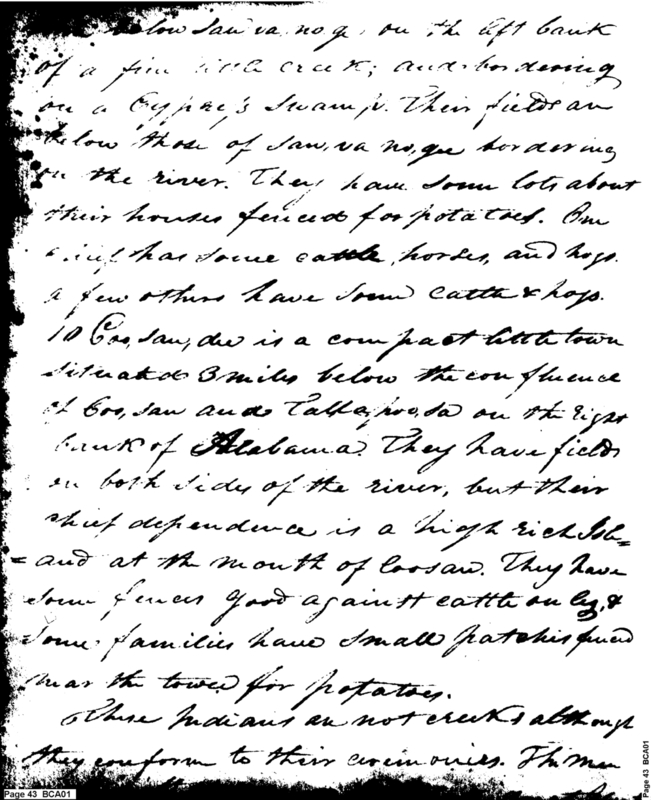 below Sau,va,no,ge, on the left bank
of a fine little creek; and bordering
on a Cypres's Swamp. Their fields are
below those of Sau,va no,gee bordering
on the river. They have some lots about
their houses fenced for potatoes. One
chief has some cattle, horses, and hogs.
a few others have some cattle & hogs.
10 Coo,sau,dee is a compact little town
situated 3 miles below the confluence
of Coo,sau and Tallapoo,sa on the right
bank of Alabama. They have fields
on both sides of the river, but their
chief dependence is a high rich Isl=
=and at the mouth of Coosau. They have
some fences good against cattle only, &
some families have small patches fenced
near the town for potatoes.
These Indians are not creeks although
they conform to their ceremonies. The men
Page 43 BCA01
Page 43 BCA01